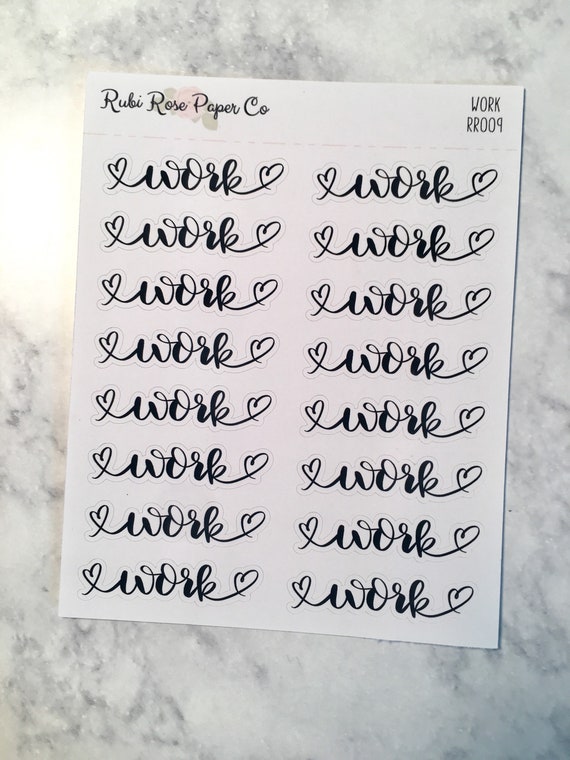 Rubi Rose Paper Co
WORK
RR009
work work
work work
work work
work work
work work
work work
work work
work work